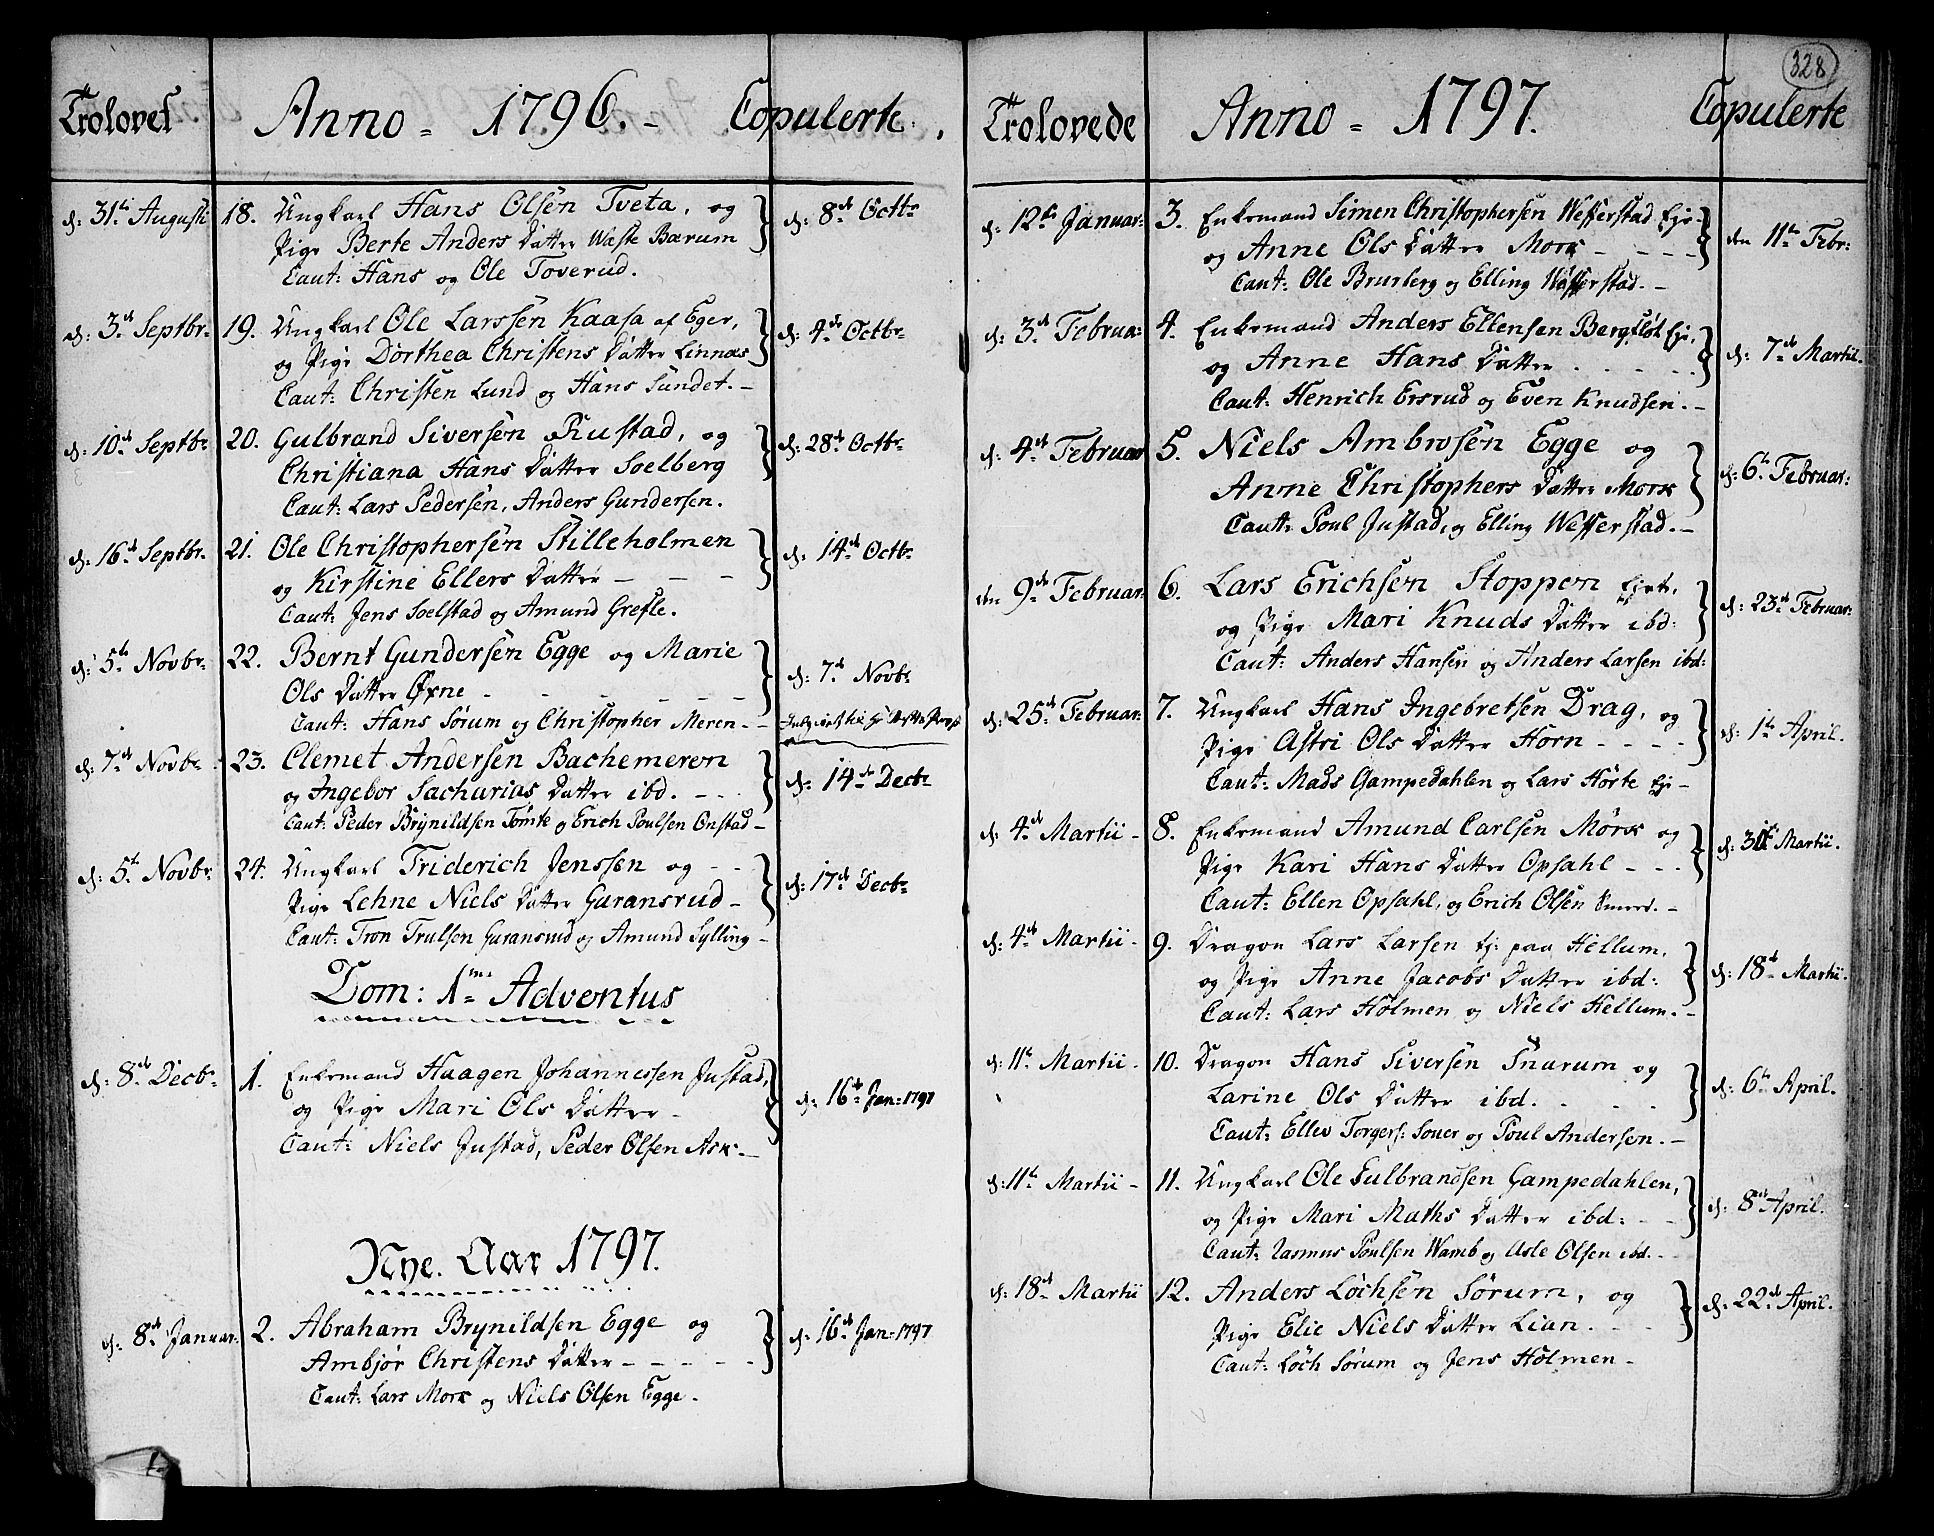 Trolovet Anno = 1796. - Copulerte.
d: 31te Augusti 18. Ungkarl Hans Olsen Tveta, og d: 8de Octbr
Pige Berte Anders Datter Wæste Bærum
Caut: Hans og Ole Toverud.
d: 3de Septbr. 19. Ungkarl Ole Larssen Kaasa af Eger, d: 4de Octbr
og Pige Dorthea Christens Datter Linnæs
Caut: Christen Lund og Hans Sundet. -
d: 10de Septbr 20. Gulbrand Siversen Rustad, og d: 28de Octbr
Christiana Hans Datter Soelberg
Caut: Lars Pedersen, Anders Gundersen.
d: 16de Septbr. 21. Ole Christophersen Stilleholmen d: 14de Octbr
og Kirstine Ellers Datter - - -
Caut: Jens Soelstad og Amund Grefle.
d: 5te Novbr. 22. Bernt Gundersen Egge og Marie d: 7de Novbr
Ols Datter Øxne - - - - - -
Caut: Hans Sørum og Christopher Meren - -
d: 7de Novbr 23. Clemet Andersen Bachemeron d: 14de Decbr
og Ingebor Sacharias Datter ibd. - - -
Caut: Peder Brynildsen Tomte og Erich Poulsen Onstad -
d: 5te Novbr 24. Ungkarl Friderich Jenssen og - - d: 17de Decbr
Pige Lehne Niels Datter Guransrud -
Caut: Tron Trulsen Guransrud og Amund Sylling -
Dom: 1ma Adventus
d: 8de Decbr 1. Enkemand Haagen Johannessen Justad, d: 16de Jan: 1797
og Pige Mari Ols Datter -
Caut: Niels Justad, Peder Olsen Ask. -
Nye Aar 1797.
d: 8de Januar: 2. Abraham Brynildsen Egge og d: 16de Jan: 1797
Ambjør Christens Datter - - - - -
Caut: Lars Mork og Niels Olsen Egge -
328
Trolovede Anno = 1797. Copulerte
d: 12te Januar: 3. Enkemand Simen Christophersen Wefferstad Eje- den 11te Febr:
og Anne Ols Datter Mork - - - -
Caut: Ole Brurberg og Elling Wefferstad. -
d: 3de Februa: 4. Enkemand Anders Ellensen Bergsløt Eje, d: 7de Martii.
og Anne Hans Datter - - - -
Caut: Henrich Ersrud og Even Knudsen. -
d: 4de Februar 5. Niels Ambrosen Egge og d: 6te Februar:
Anne Christophers Datter Mork
Caut: Poul Justad, og Elling Wefferstad. -
den 9de Februar: 6. Lars Erichsen Stoppen Ejet, d: 23de Februar:
og Pige Mari Knuds Datter ibd:
Caut: Anders Hansen og Anders Larsen ibd:
d: 25de Februar: 7. Ungkarl Hans Ingebretsen Drag, og d: 1te April.
Pige Astri Ols Datter Horn - - - -
Caut: Mads Gampedahlen og Lars Horte Eje -
d: 4de Martii - 8. Enkemand Amund Carlsen Mork og d: 31te Martii.
Pige Kari Hans Datter Opsahl - - -
Caut: Ellen Opsahl, og Erich Olsen -
d: 4de Martii - 9. Dragon Lars Larsen tj: paa Hellum, d: 18de Martii.
og Pige Anne Jacobs Datter ibd:
Caut: Lars Holmen og Niels Hellum. -
d: 11te Martii - 10. Dragon Hans Siversen Snarum og d: 6te April.
Larine Ols Datter ibd. - - -
Caut: Ellev Torgers: Soner og Poul Andersen. -
d: 11te Martii - 11. Ungkarl Ole Gulbrandsen Gampedahlen, d: 8de April.
og Pige Mari Maths Datter ibd: - -
Caut: Rasmus Poulsen Wamb og Asle Olsen ibd. -
d: 18de Martii 12. Anders Lochsen Sørum, og d: 22de April.
Pige Elie Niels Datter Lian. - - -
Caut: Loch Sørum og Jens Holmen -